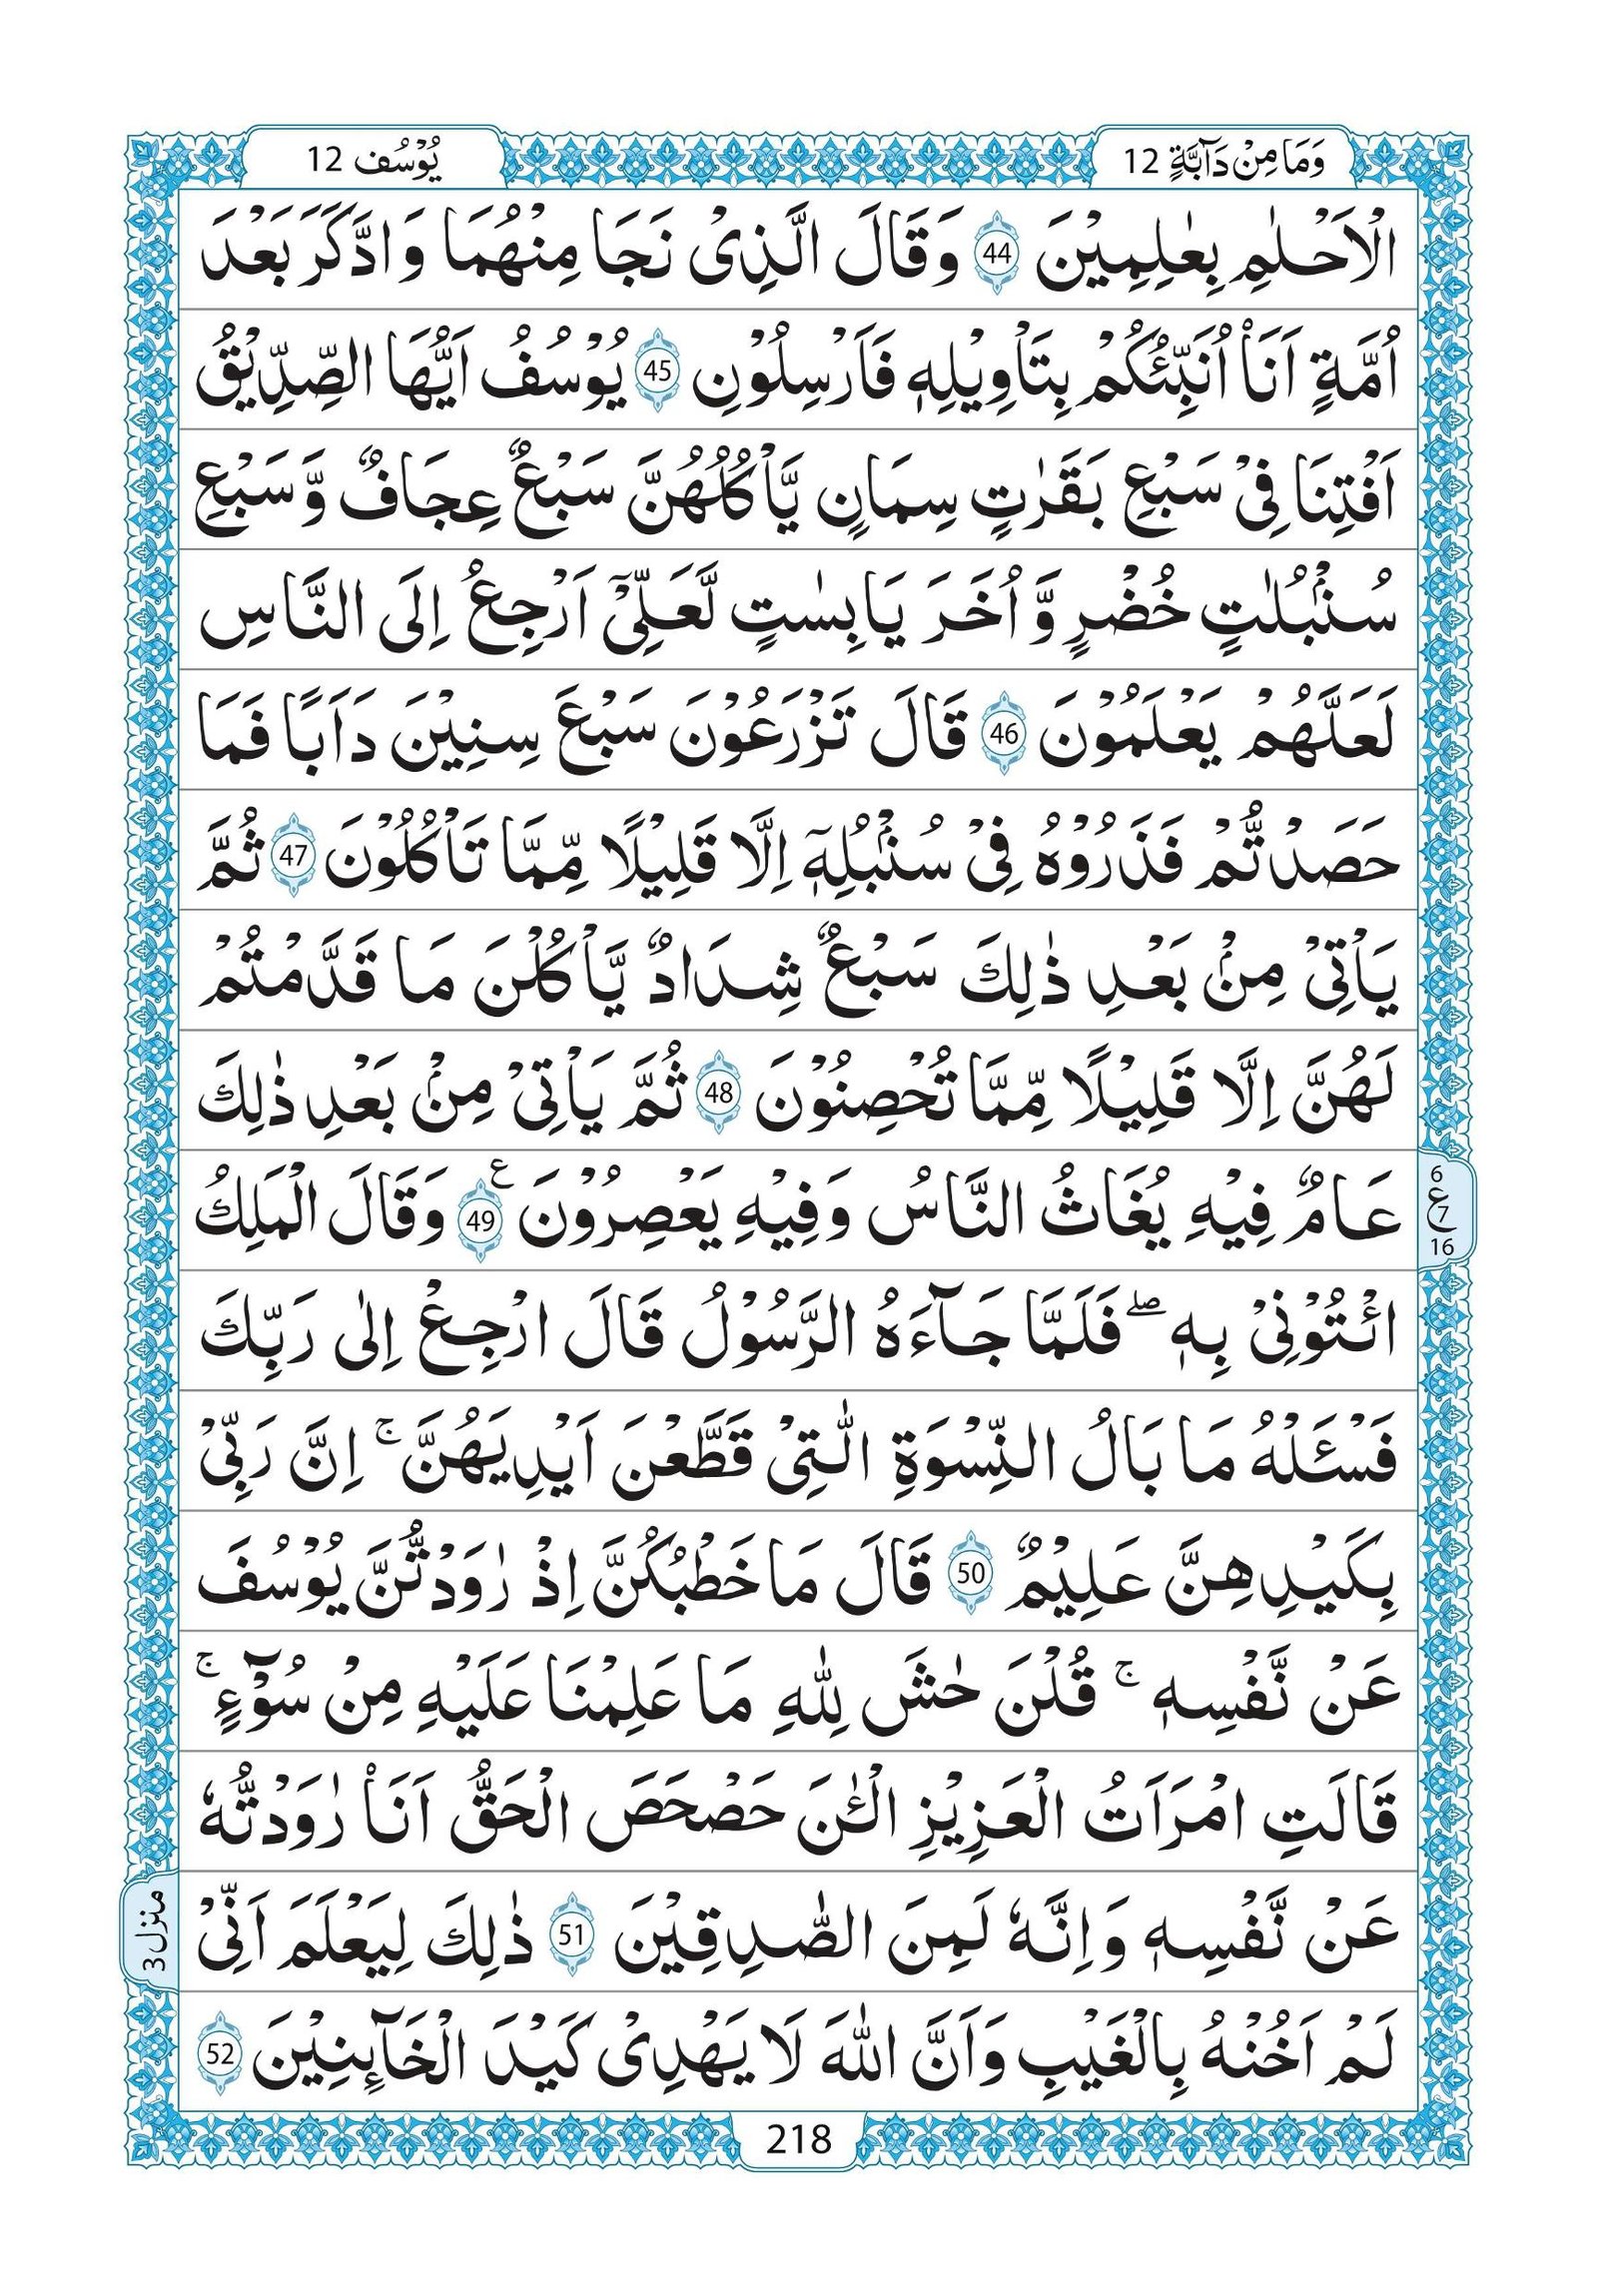 وَمَا مِنْ دَآبَّةٍ 12
یُوْسُف 12
الْاَحْلٰمِ بِعٰلِمِیْنَ 44 وَقَالَ الَّذِیْ نَجَا مِنْهُمَا وَادَّكَرَ بَعْدَ
اُمَّةٍ اَنَا۠ اُنَبِّئُكُمْ بِتَاْوِیْلِهٖ فَاَرْسِلُوْنِ 45 یُوْسُفُ اَیُّهَا الصِّدِّیْقُ
اَفْتِنَا فِیْ سَبْعِ بَقَرٰتٍ سِمَانٍ یَّاْكُلُهُنَّ سَبْعٌ عِجَافٌ وَّسَبْعِ
سُنْۢبُلٰتٍ خُضْرٍ وَّاُخَرَ یَابِسٰتٍ لَّعَلِّیْۤ اَرْجِعُ اِلَی النَّاسِ
لَعَلَّهُمْ یَعْلَمُوْنَ 46 قَالَ تَزْرَعُوْنَ سَبْعَ سِنِیْنَ دَاَبًا فَمَا
حَصَدْتُّمْ فَذَرُوْهُ فِیْ سُنْۢبُلِهٖۤ اِلَّا قَلِیْلًا مِّمَّا تَاْكُلُوْنَ 47 ثُمَّ
یَاْتِیْ مِنْۢ بَعْدِ ذٰلِكَ سَبْعٌ شِدَادٌ یَّاْكُلْنَ مَا قَدَّمْتُمْ
لَهُنَّ اِلَّا قَلِیْلًا مِّمَّا تُحْصِنُوْنَ 48 ثُمَّ یَاْتِیْ مِنْۢ بَعْدِ ذٰلِكَ
عَامٌ فِیْهِ یُغَاثُ النَّاسُ وَفِیْهِ یَعْصِرُوْنَ ع 49 وَقَالَ الْمَلِكُ
6 ع 7 16
ائْتُوْنِیْ بِهٖ ۖ فَلَمَّا جَآءَهُ الرَّسُوْلُ قَالَ ارْجِعْ اِلٰی رَبِّكَ
فَسْـَٔلْهُ مَا بَالُ النِّسْوَةِ الّٰتِیْ قَطَّعْنَ اَیْدِیَهُنَّ ۚ اِنَّ رَبِّیْ
بِكَیْدِهِنَّ عَلِیْمٌ 50 قَالَ مَا خَطْبُكُنَّ اِذْ رٰوَدْتُّنَّ یُوْسُفَ
عَنْ نَّفْسِهٖ ۚ قُلْنَ حٰشَ لِلّٰهِ مَا عَلِمْنَا عَلَیْهِ مِنْ سُوْٓءٍ ۚ
قَالَتِ امْرَاَتُ الْعَزِیْزِ الْـٰٔنَ حَصْحَصَ الْحَقُّ اَنَا۠ رٰوَدْتُّهٗ
عَنْ نَّفْسِهٖ وَاِنَّهٗ لَمِنَ الصّٰدِقِیْنَ 51 ذٰلِكَ لِیَعْلَمَ اَنِّیْ
منزل 3
لَمْ اَخُنْهُ بِالْغَیْبِ وَاَنَّ اللّٰهَ لَا یَهْدِیْ كَیْدَ الْخَآىِٕنِیْنَ 52
218